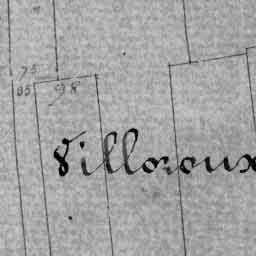 75
65 98
Villoroux